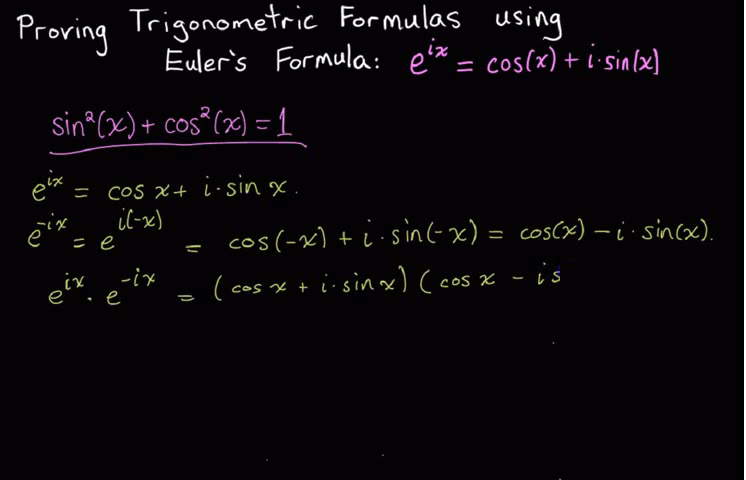 Proving Trigonometric Formulas using
Euler's Formula: e^{ix} = cos(x) + i·sin(x)
sin²(x) + cos²(x) = 1
e^{ix} = cos x + i·sin x.
e^{-ix} = e^{i(-x)} = cos(-x) + i·sin(-x) = cos(x) - i·sin(x).
e^{ix} · e^{-ix} = (cos x + i·sin x)(cos x - i s